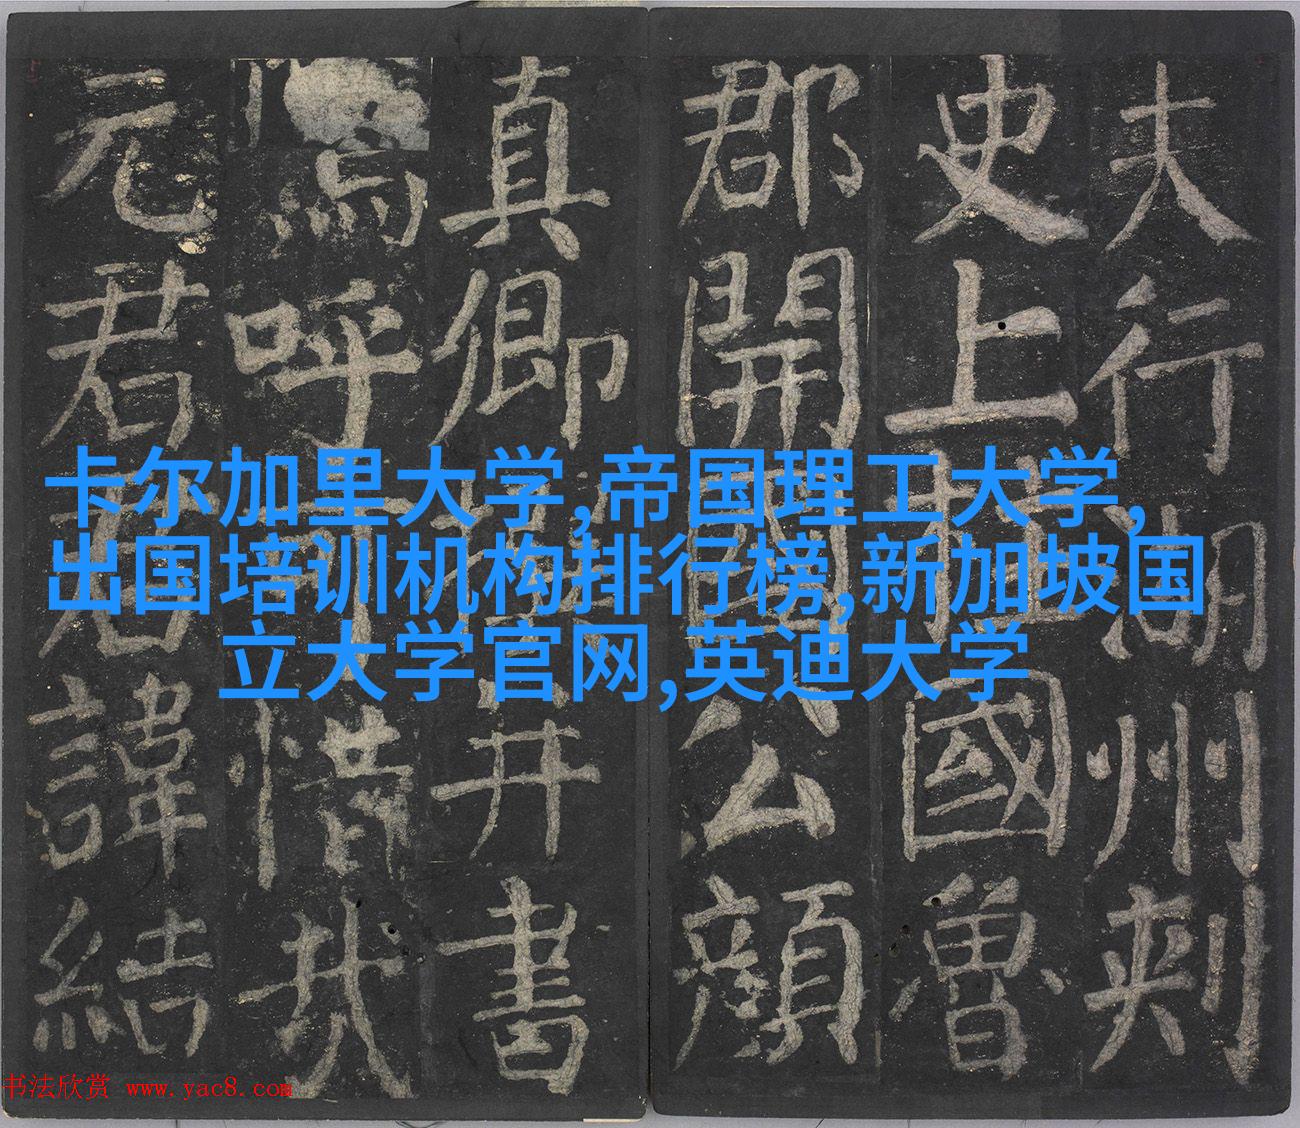 夫行湖州刺
史上柱國魯
郡開國公顏
真卿撰并書
嗚呼可惜哉
元君君諱結
卡尔加里大学,帝国理工大学,
出国培训机构排行榜,新加坡国
立大学官网,英迪大学
书法欣赏 www.yac8.com